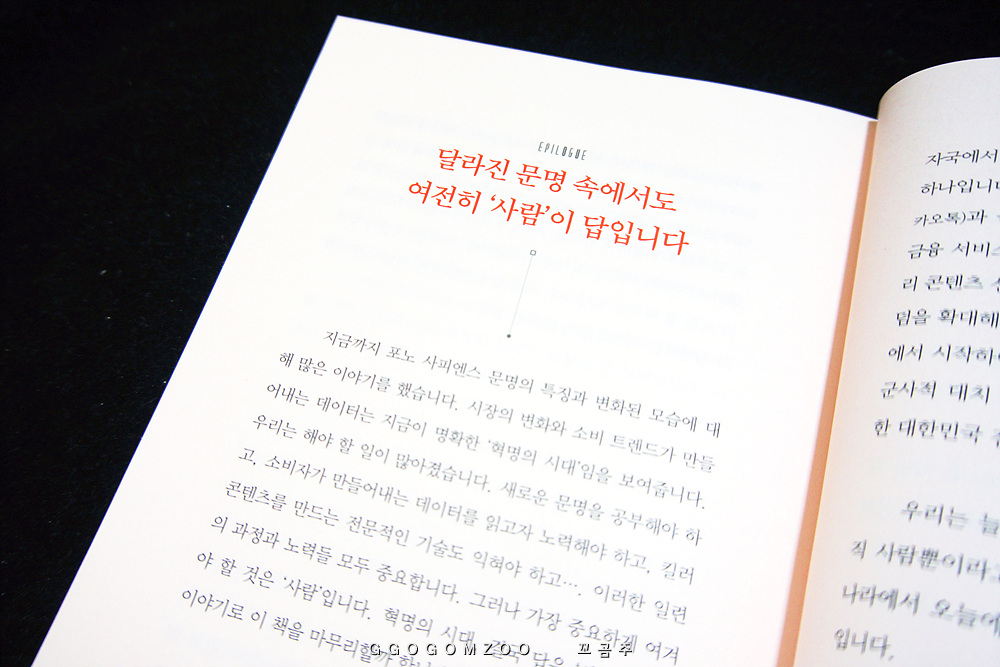 EPILOGUE
달라진 문명 속에서도
여전히 ‘사람’이 답입니다
지금까지 포노 사피엔스 문명의 특징과 변화된 모습에 대
해 많은 이야기를 했습니다. 시장의 변화와 소비 트렌드가 만들
어내는 데이터는 지금이 명확한 ‘혁명의 시대’임을 보여줍니다.
우리는 해야 할 일이 많아졌습니다. 새로운 문명을 공부해야 하
고, 소비자가 만들어내는 데이터를 읽고자 노력해야 하고, 킬러
콘텐츠를 만드는 전문적인 기술도 익혀야 하고…. 이러한 일련
의 과정과 노력들 모두 중요합니다. 그러나 가장 중요하게 여겨
야 할 것은 ‘사람’입니다. 혁명의 시대, 결국 답은
이야기로 이 책을 마무리할까
자국에서
하나입니다
카오톡)과
금융 서비스
리 콘텐츠
덤을 확대해
에서 시작하
군사적 대치
한 대한민국
우리는 늘
직 사람뿐이라고
나라에서 오늘
입니다.
GGOGOMZOO 꼬곰주